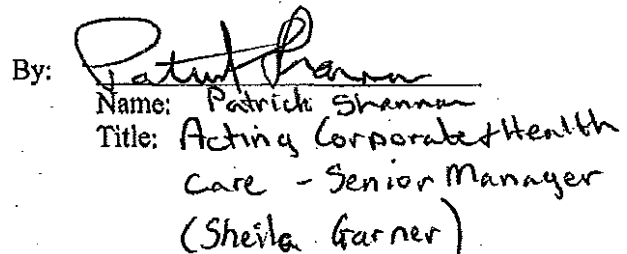 By: Patrick Shannon
Name: Patrick Shannon
Title: Acting Corporate & Health
Care - Senior Manager
(Sheila Garner)